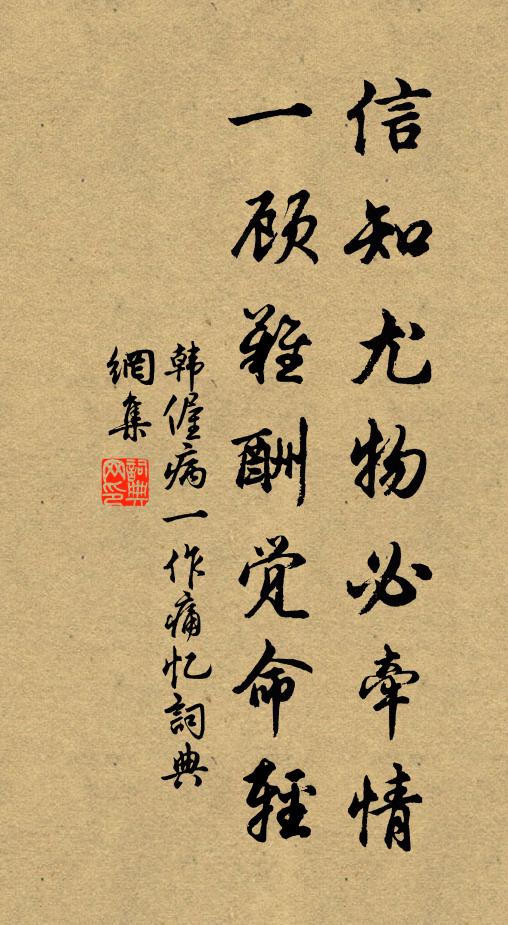 信知尤物必牵情
一顾难酬觉命轻
韩偓病一作痛忆词典
網集
詞典
网印